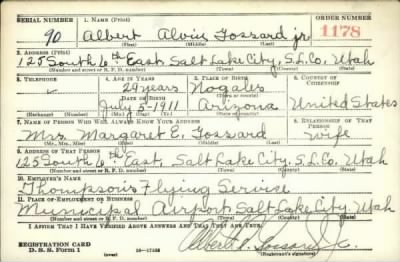 SERIAL NUMBER 1. NAME (Print) ORDER NUMBER
90 Albert Alvin Fossard jr. 1178
(First) (Middle) (Last)
2. ADDRESS (Print)
125 South 6th East Salt Lake City, S.L.Co. Utah
(Number and street or R. F. D. number) (Town) (County) (State)
3. TELEPHONE 4. AGE IN YEARS 5. PLACE OF BIRTH 6. COUNTRY OF CITIZENSHIP
29 years Nogales
DATE OF BIRTH
July 5-1911 Arizona United States
(Exchange) (Number) (Mo.) (Day) (Yr.) (State or country)
7. NAME OF PERSON WHO WILL ALWAYS KNOW YOUR ADDRESS 8. RELATIONSHIP OF THAT PERSON
Mrs. Margaret E. Fossard wife
(Mr., Mrs., Miss) (First) (Middle) (Last)
9. ADDRESS OF THAT PERSON
125 South 6th East, Salt Lake City, S.L.Co. Utah
(Number and street or R. F. D. number) (Town) (County) (State)
10. EMPLOYER'S NAME
Thompson's Flying Service
11. PLACE OF EMPLOYMENT OR BUSINESS
Municipal Airport Salt Lake City, Utah
(Number and street or R. F. D. number) (Town) (County) (State)
I AFFIRM THAT I HAVE VERIFIED ABOVE ANSWERS AND THAT THEY ARE TRUE.
REGISTRATION CARD
D. S. S. Form 1 Albert A. Fossard Jr.
(over) (Registrant's signature)